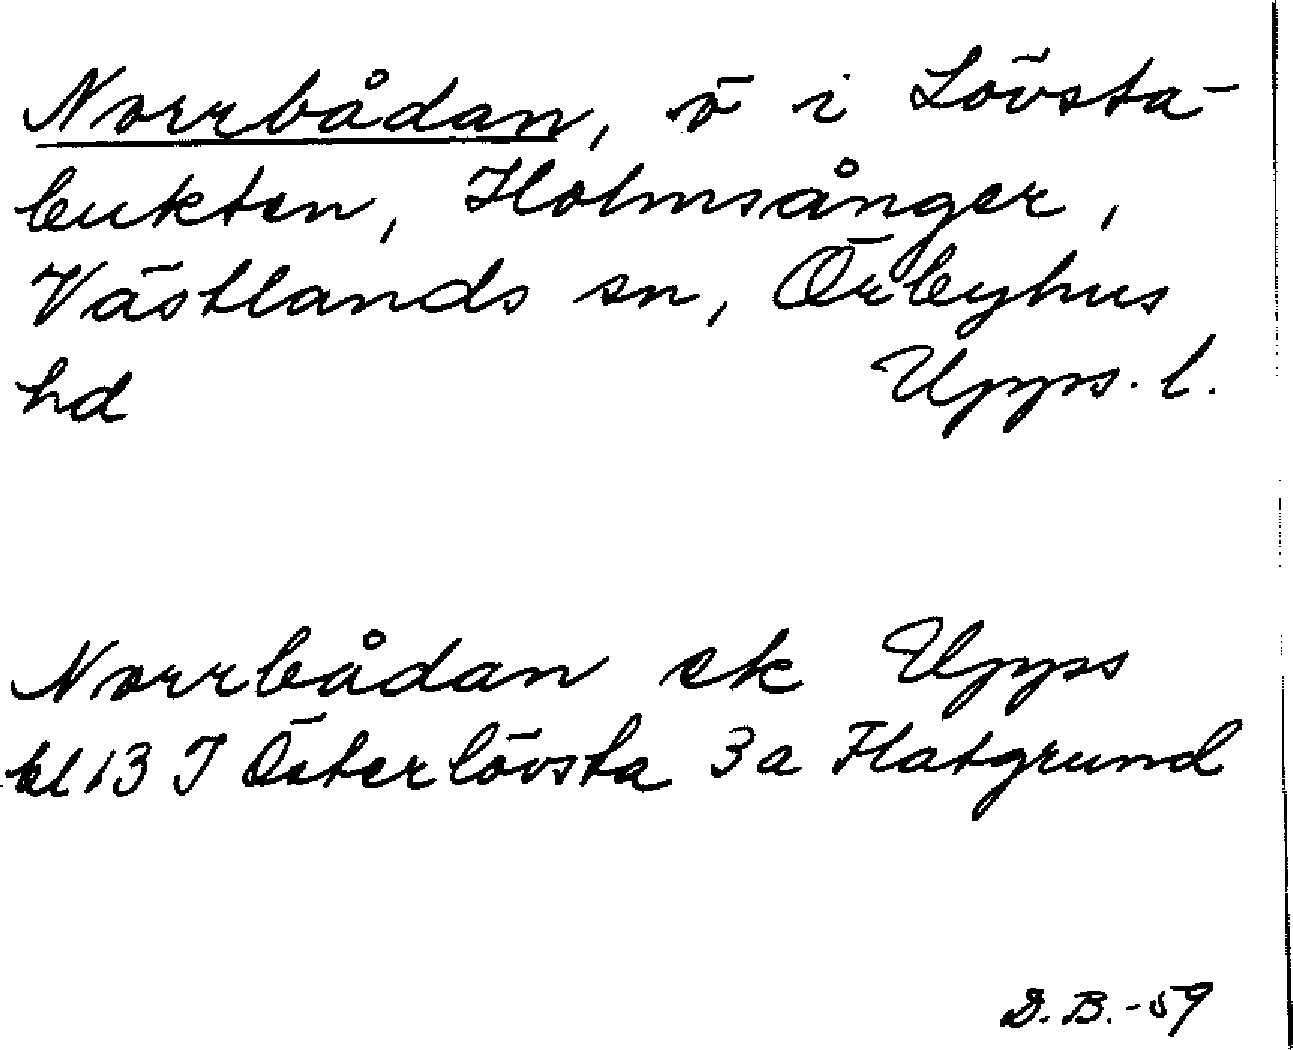 Norrbådan, ö i Lövsta-
bukten, Holmsånger,
Västlands sn, Örbyhus
hd Upps. l.
Norrbådan ek Upps
bl 13 I Österlövsta 3a Flatgrund
D. B. -59